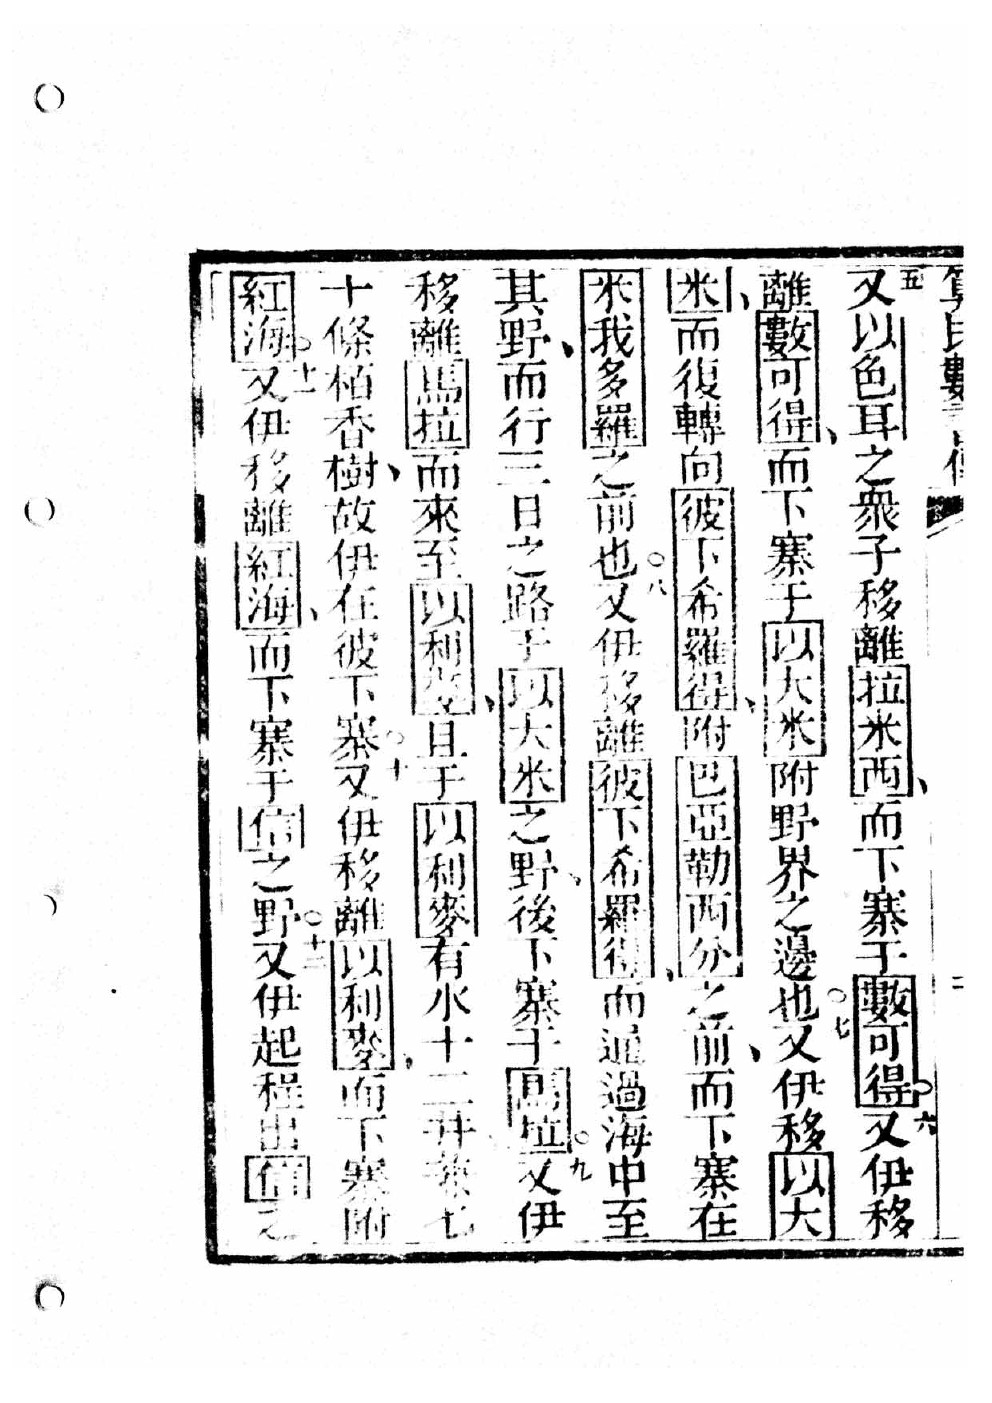 五又以色耳之衆子移離拉米西、而下寨于數可得○六又伊移
離數可得、而下寨于以大米附野界之邊也○七又伊移以大
米、而復轉向彼下希羅得、附巴亞勒西分之前、而下寨在
米我多羅之前也○八又伊移離彼下希羅得、而通過海中至
其野、而行三日之路于以大米之野、後下寨于馬拉○九又伊
移離馬拉而來至以利麥、且于以利麥有水十二井並七
十條栢香樹、故伊在彼下寨○十又伊移離以利麥、而下寨附
紅海○十一又伊移離紅海、而下寨于信之野○十二又伊起程出信之